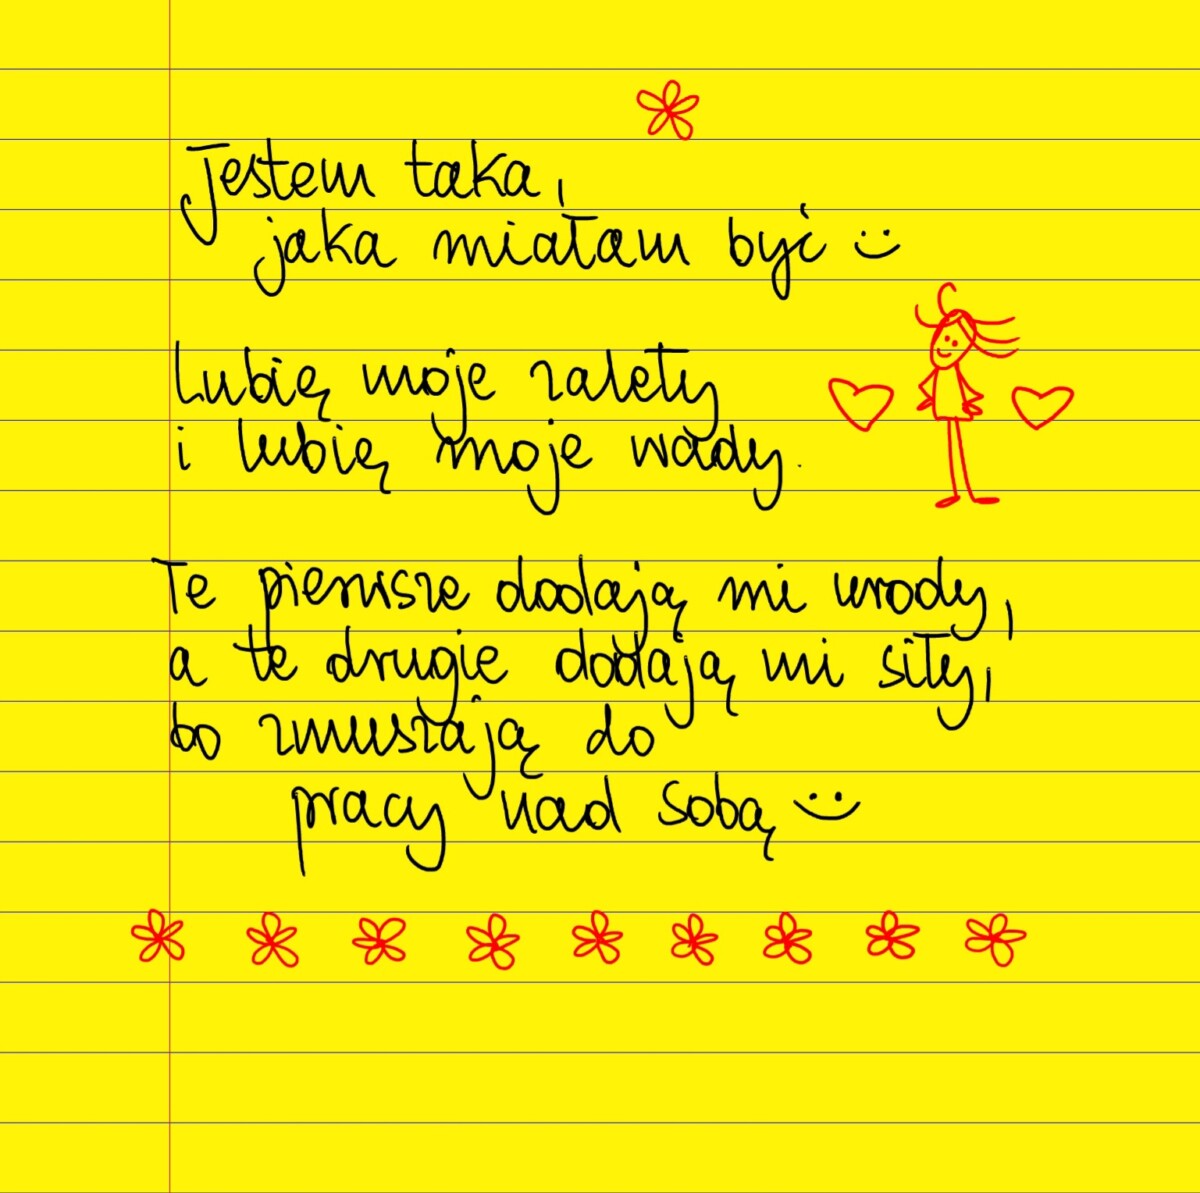 Jestem taka,
jaka miałam być :)
Lubię moje zalety
i lubię moje wady.
Te pierwsze dodają mi urody,
a te drugie dodają mi siły,
bo zmuszają do
pracy nad sobą :)